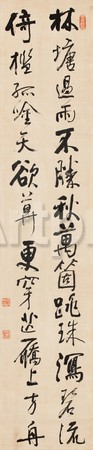 林塘過雨不勝秋萬箇跳珠瀉碧流
倚檻孤吟天欲莫更穿
上方舟